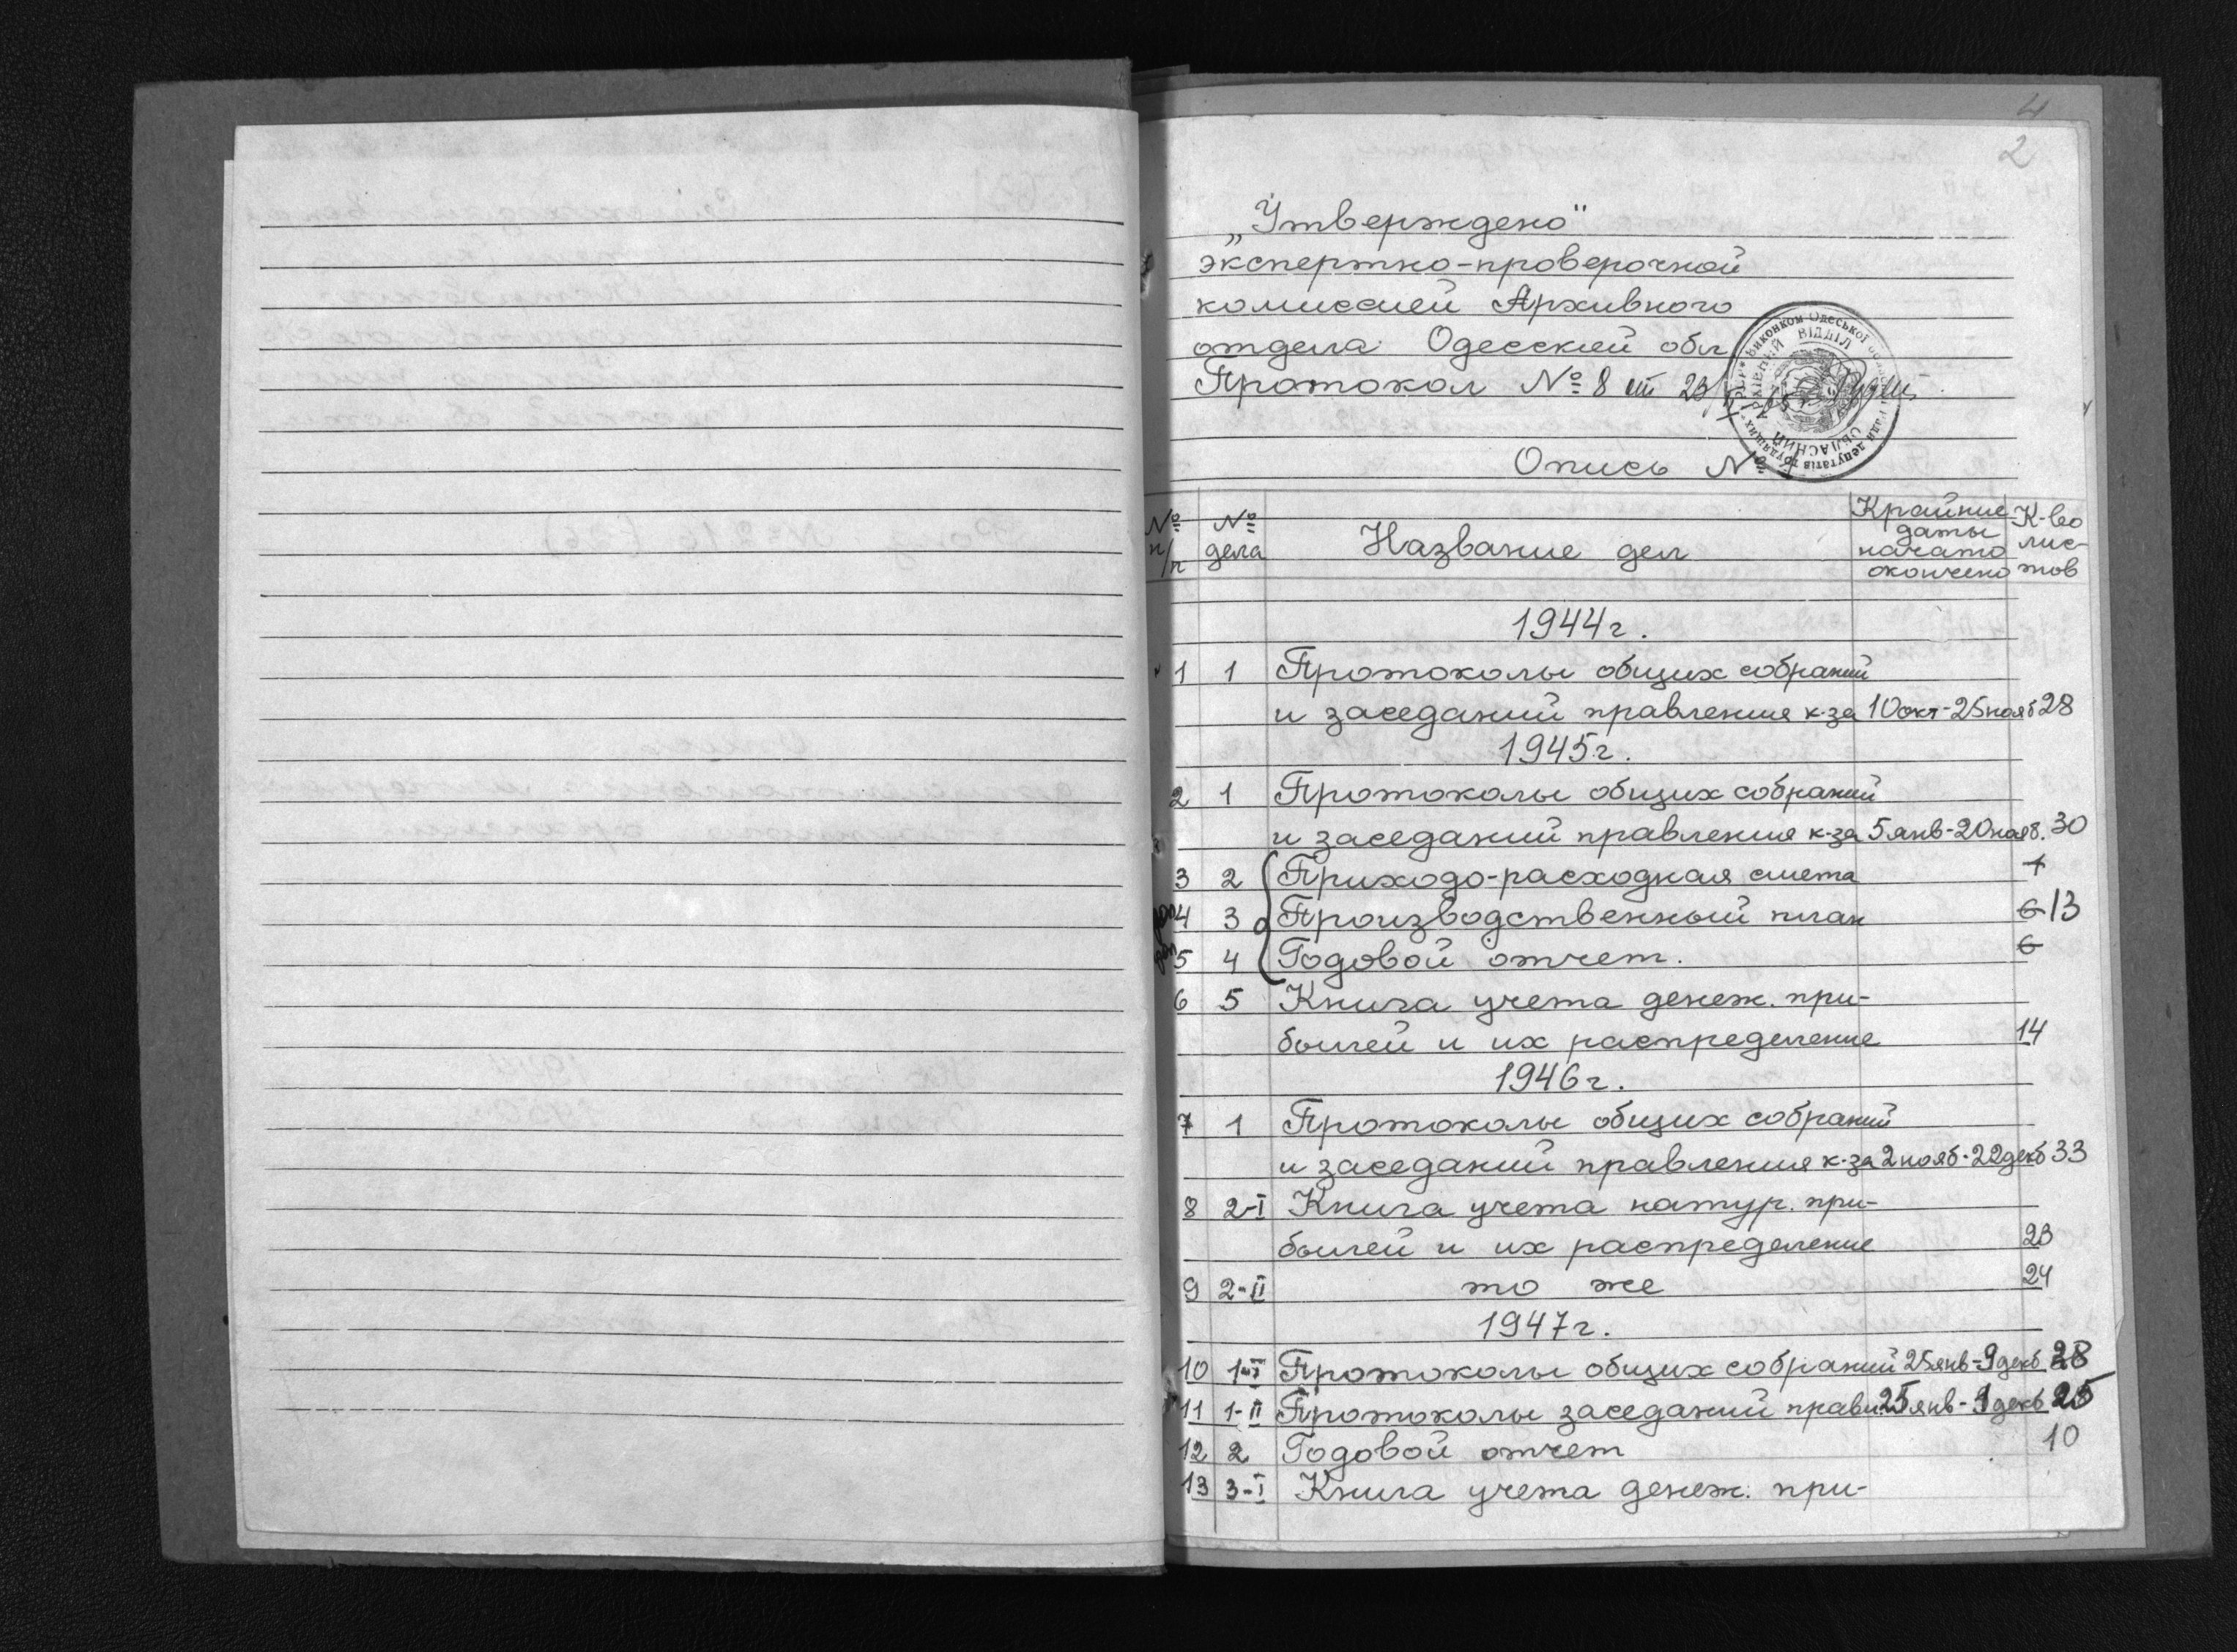 4
2
„Утверждено"
экспертно-проверочной
комиссией Архивного
отдела Одесской обл
Протокол № 8 от 23/
АРХІВНИЙ ВІДДІЛ
ОБЛАСНИЙ
Виконком Одеської депутатів трудящих
Опись №
№ п/п № дела Название дел Крайние даты начато окончено К-во листов
1944г.
1 1 Протоколы общих собраний
и заседаний правления к-за 10окт-25нояб 28
1945г.
2 1 Протоколы общих собраний
и заседаний правления к-за 5янв-20нояб. 30
3 2 Приходо-расходная смета 1
доп 4 3 Производственный план 6 13
доп 5 4 Годовой отчет. 6
6 5 Книга учета денеж. при-
былей и их распределение 14
1946г.
7 1 Протоколы общих собраний
и заседаний правления к-за 2нояб-22декб 33
8 2-I Книга учета натур. при-
былей и их распределение 23
9 2-II то же 24
1947г.
10 1-I Протоколы общих собраний 25янв-9декб 28
11 1-II Протоколы заседаний правл. 25янв-9декб 25
12 2 Годовой отчет 10
13 3-I Книга учета денеж. при-